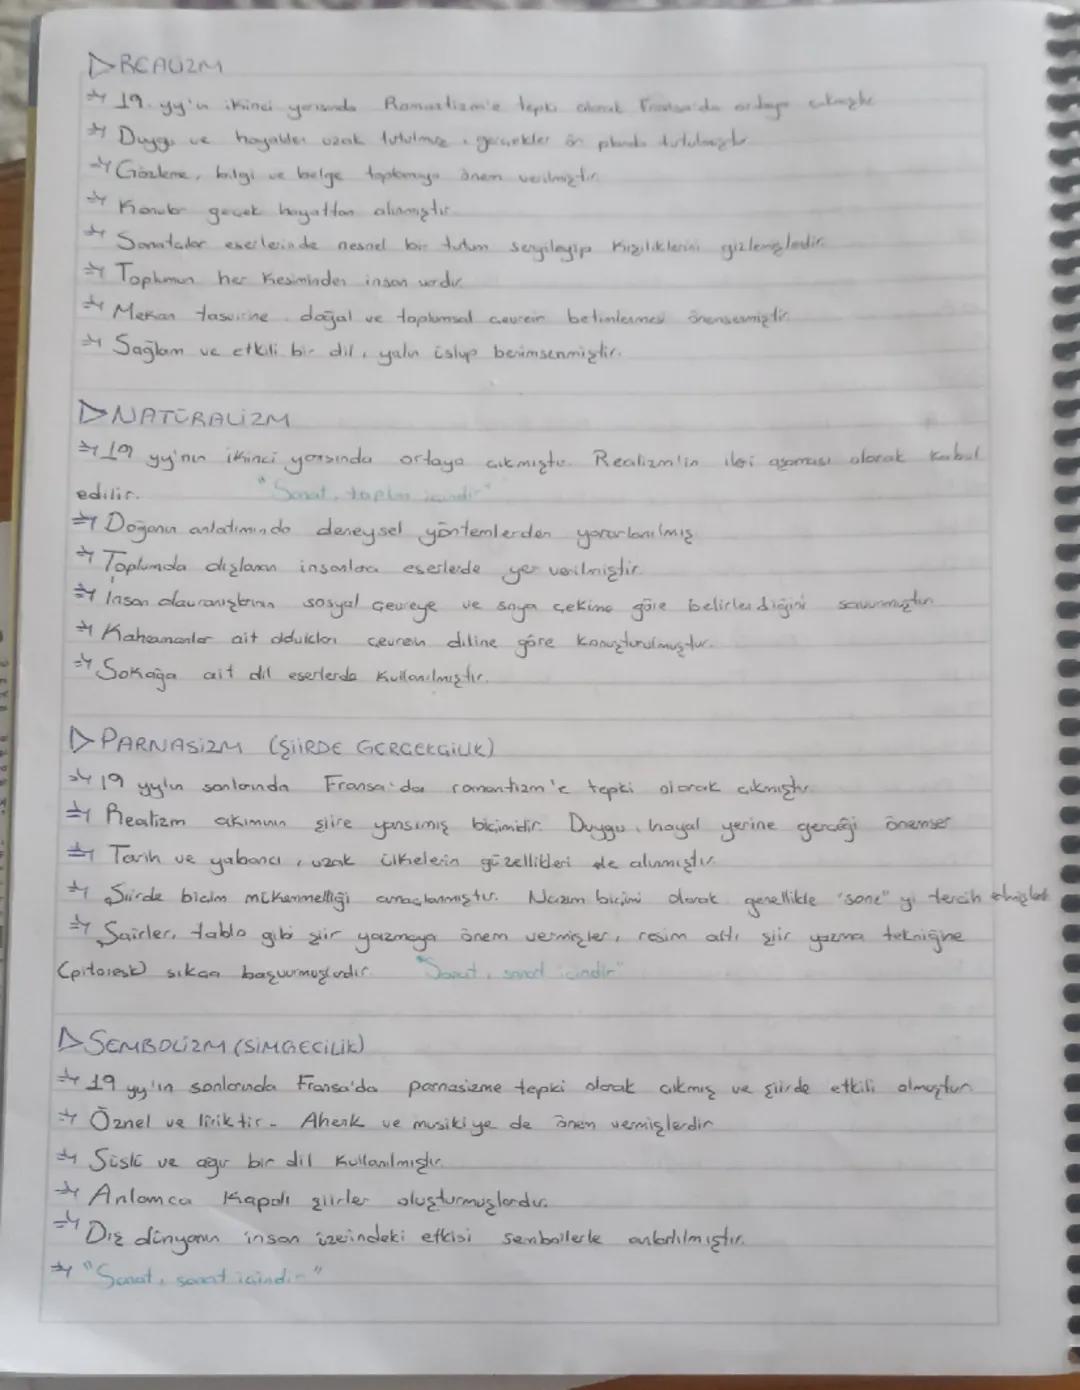 REALİZM
19. yy'ın ikinci yarısında Romantizm'e tepki olarak Fransa'da ortaya çıkmıştır
Duygu ve hayalden uzak tutulmuş, gerçekler ön planda tutulmuştur
Gözleme, bilgi ve belge toplamaya önem verilmiştir.
Konular gerçek hayattan alınmıştır.
Sanatçılar eserlerinde nesnel bir tutum sergileyip kişiliklerini gizlemişlerdir.
Toplumun her kesiminden insan vardır.
Mekan tasvirine, doğal ve toplumsal çevrenin betimlemesi önemsenmiştir.
Sağlam ve etkili bir dil, yalın üslup benimsenmiştir.
NATÜRALİZM
19 yy'nın ikinci yarısında ortaya çıkmıştır. Realizm'in ileri aşaması olarak kabul
edilir. "Sanat, toplum içindir"
Doğanın anlatımında deneysel yöntemlerden yararlanılmış
Toplumda dışlanan insanlara eserlerde yer verilmiştir.
İnsan davranışlarının sosyal çevreye ve soya çekime göre belirlendiğini savunmuştur.
Kahramanlar ait oldukları çevrenin diline göre konuşturulmuştur.
Sokağa ait dil eserlerde kullanılmıştır.
PARNASİZM (ŞİİRDE GERÇEKÇİLİK)
19 yy'ın sonlarında Fransa'da romantizm'e tepki olarak çıkmıştır.
Realizm akımının şiire yansımış biçimidir. Duygu, hayal yerine gerçeği önemser
Tarih ve yabancı, uzak ülkelerin güzellikleri ele alınmıştır.
Şiirde biçim mükemmelliği amaçlanmıştır. Nazım biçimi olarak genellikle "sone" yi tercih etmişler
Şairler, tablo gibi şiir yazmaya önem vermişler, resim altı şiir yazma tekniğine
(pitoresk) sıkça başvurmuşlardır. "Sanat, sanat içindir"
SEMBOLİZM (SİMGECİLİK)
19 yy'ın sonlarında Fransa'da parnasizme tepki olarak çıkmış ve şiirde etkili olmuştur.
Öznel ve liriktir. Ahenk ve musikiye de önem vermişlerdir
Süslü ve ağır bir dil kullanılmıştır.
Anlamca kapalı şiirler oluşturmuşlardır.
Dış dünyanın insan üzerindeki etkisi sembollerle anlatılmıştır.
"Sanat, sanat içindir"